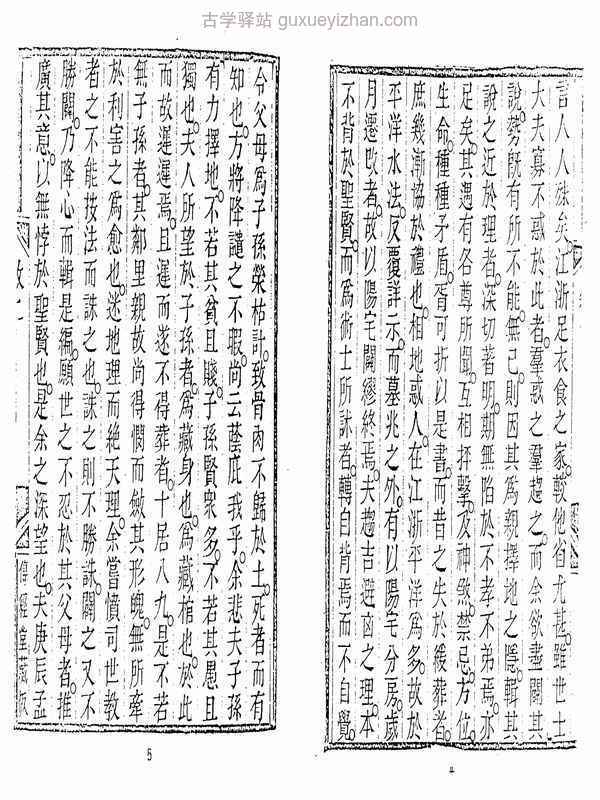 古学驿站 guxueyizhan.com
言人人殊矣。江浙足衣食之家。較他省尤甚。雖世士
大夫寡不惑於此者。羣惑之羣趨之。而余欲盡闢其
說。勢既有所不能。無已則因其為親擇地之隱。輯其
說之近於理者。深切著明。期無陷於不孝不弟焉。亦
足矣。其遇有各尊所聞。互相抨擊。及神煞。禁忌。方位。
生命。種種矛盾。胥可折以是書。而昔之失於緩葬者。
庶幾漸協於禮也。相地惑人。在江浙平洋為多。故於
平洋水法。反覆詳示。而墓兆之外。有以陽宅分房。歲
月遷改者。故以陽宅闢繆終焉。夫趨吉避凶之理。本
不背於聖賢。而為術士所訹者。轉自背焉而不自覺。
令父母為子孫榮枯計。致骨肉不歸於土。死者而有
知也。方將降譴之不暇。尚云蔭庇我乎。余悲夫子孫
有力擇地。不若其貧且賤。子孫賢衆多。不若其愚且
獨也。夫人所望於子孫者。為藏身也。為藏棺也。於此
而故遲遲焉。且遲而遂不得葬者。十居八九。是不若
無子孫者。其鄰里親故尚得憫而斂其形魄。無所牽
於利害之為愈也。迷地理而絕天理。余嘗憤司世教
者之不能按法而誅之也。誅之則不勝誅。闢之又不
勝闢。乃降心而輯是編。願世之不忍於其父母者。推
廣其意。以無悖於聖賢也。是余之深望也。夫庚辰孟
傳經堂藏版
5